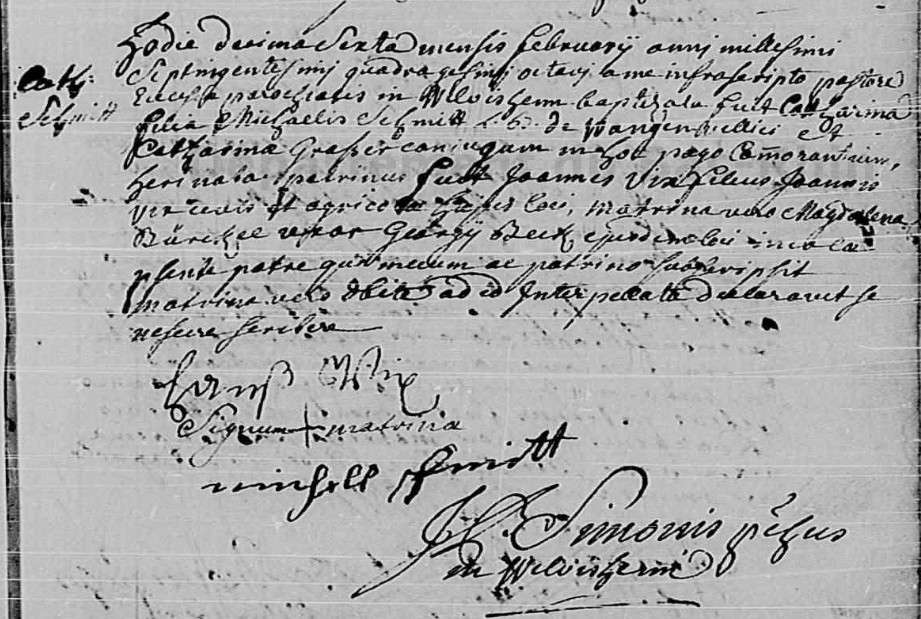 Hodie decima Sexta mensis februarij anni millesimi
Cath:
Schmitt
Septingentesimi quadragesimi octavi a me infrascripto pastore
Ecclesiae parochialis in Wilvisheim baptizata fuit Catharina
filia Michaelis Schmitt de Wangen et
Catharinae conjugum in hoc pago Commorantium,
heri nata patrinus fuit Joannes Vix filius Joannis
Vix civis et agricolae hujus loci, matrina vero Magdalena
Bürckel uxor Georgij Beck ejusdem loci incolae
psente patre qui mecum ac patrino subscripsit
matrina vero debite ad id Interpellata declaravit se
nescire scribere
Hanß Wix
Signum + matrina
michell schmitt
Simonis
in Wilvisheim